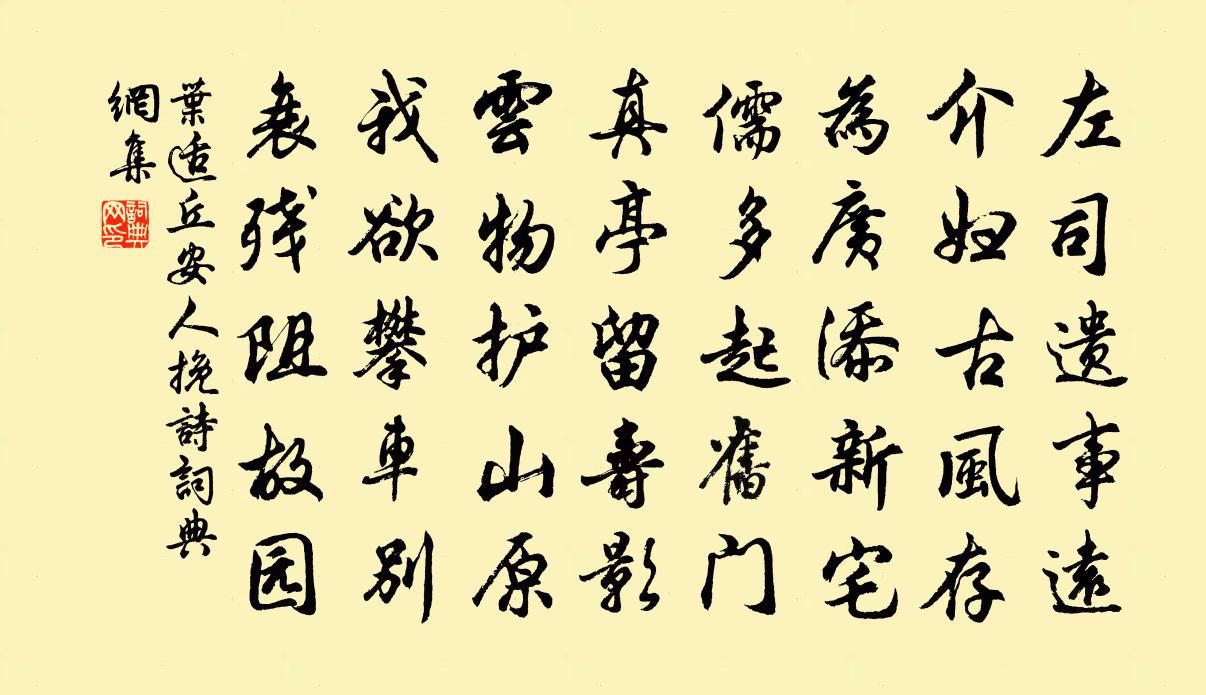 左司遗事遠
介妇古風存
為廣添新宅
儒多起舊门
真亭留壽影
雲物护山原
我欲攀車別
衰残阻故园
葉适丘安人挽詩詞典
網集
詞典
网印